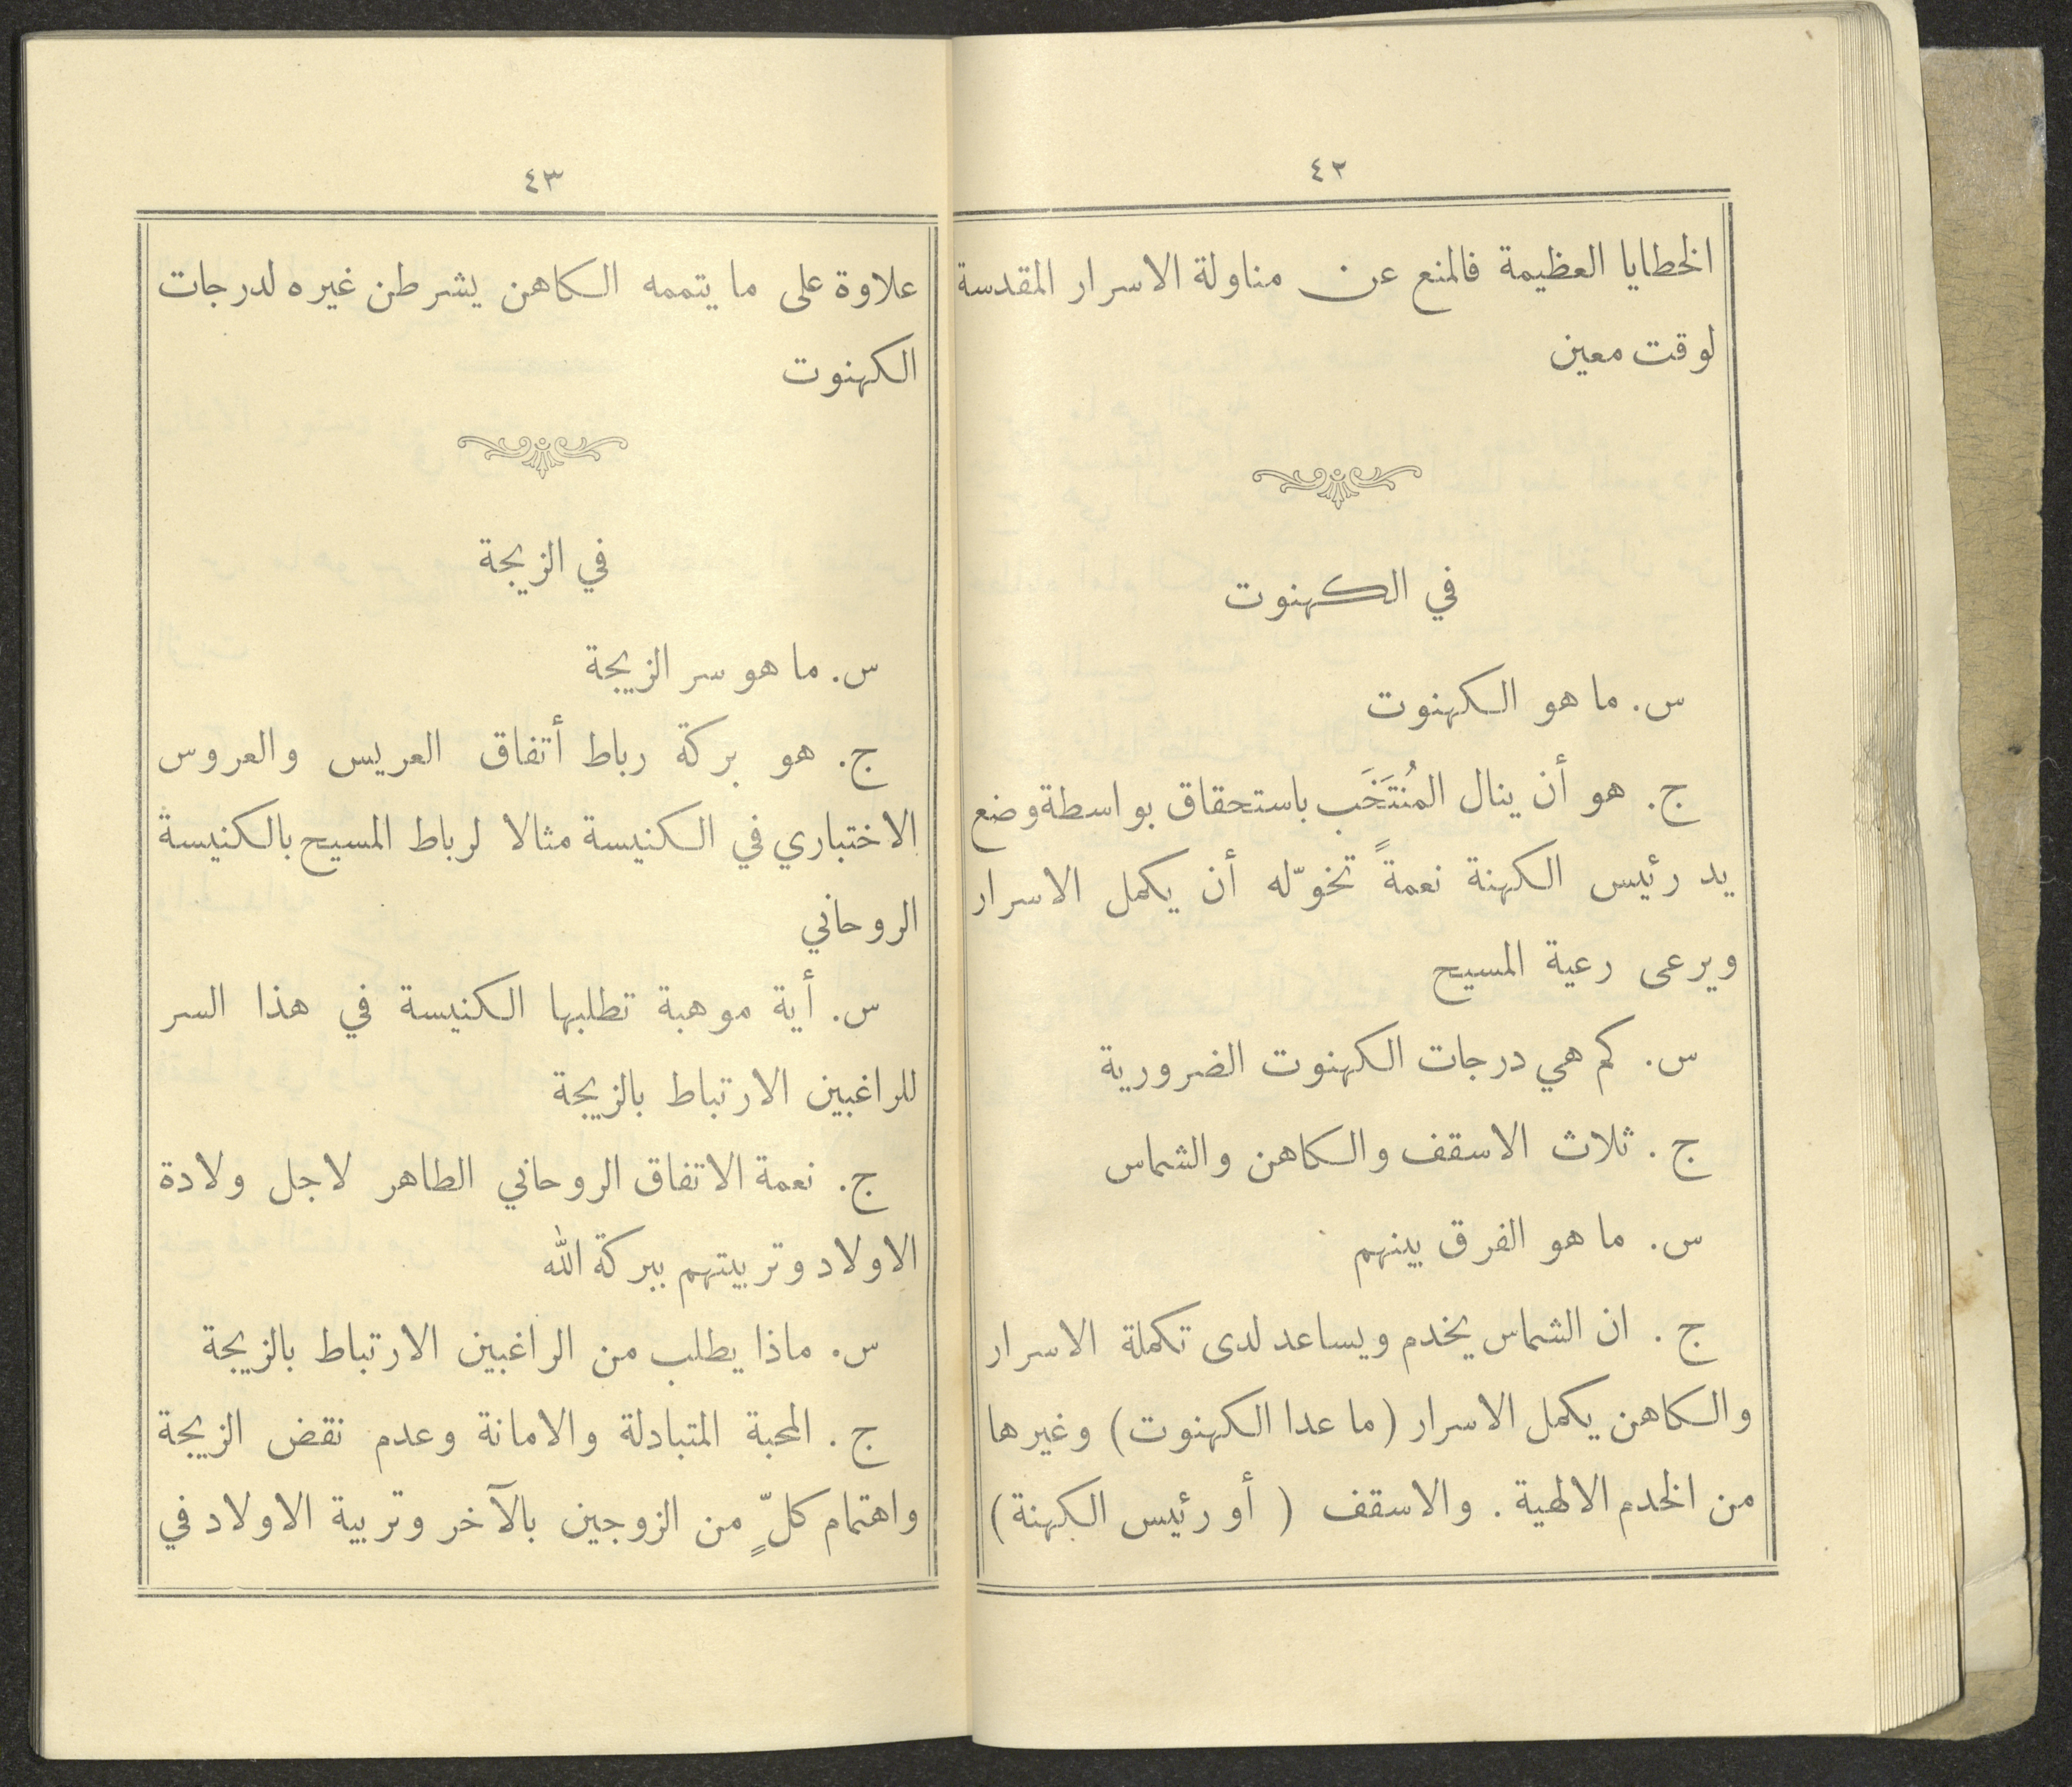 ٤٢
الخطايا العظيمة فالمنع عن مناولة الاسرار المقدسة
لوقت معين
في الكهنوت
س. ما هو الكهنوت
ج. هو أن ينال المُنتَخَب باستحقاق بواسطة وضع
يد رئيس الكهنة نعمةً تخوّله أن يكمل الاسرار
ويرعى رعية المسيح
س. كم هي درجات الكهنوت الضرورية
ج. ثلاث الاسقف والكاهن والشماس
س. ما هو الفرق بينهم
ج. ان الشماس يخدم ويساعد لدى تكملة الاسرار
والكاهن يكمل الاسرار (ما عدا الكهنوت) وغيرها
من الخدم الالهية. والاسقف (أو رئيس الكهنة)
٤٣
علاوة على ما يتممه الكاهن يشرطن غيره لدرجات
الكهنوت
في الزيجة
س. ما هو سر الزيجة
ج. هو بركة رباط أتفاق العريس والعروس
الاختباري في الكنيسة مثالا لرباط المسيح بالكنيسة
الروحاني
س. أية موهبة تطلبها الكنيسة في هذا السر
للراغبين الارتباط بالزيجة
ج. نعمة الاتفاق الروحاني الطاهر لاجل ولادة
الاولاد وتربيتهم ببركة الله
س. ماذا يطلب من الراغبين الارتباط بالزيجة
ج. المحبة المتبادلة والامانة وعدم نقض الزيجة
واهتمام كلّ من الزوجين بالآخر وتربية الاولاد في